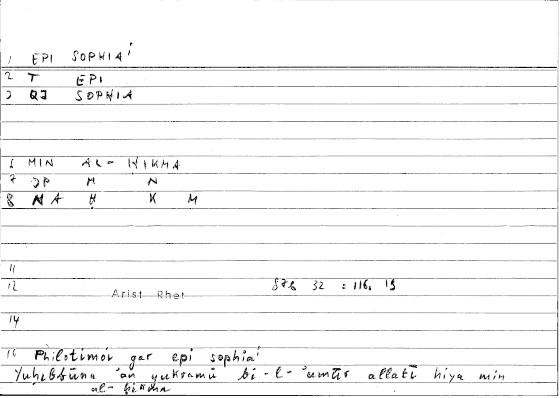 1 EPI SOPHIAⁱ
2 T EPI
3 QJ SOPHIA
6 MIN AL- ḤIKMA
7 JP M N
8 NA Ḥ K M
11
12 Arist Rhet 87b 32 : 116, 19
14
16 Philotimoi gar epi sophiaⁱ
Yuḥibbūna 'an yukramū bi-l-'umūr allatī hiya min
al-ḥikma